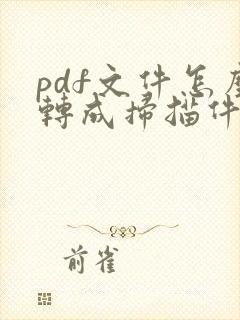 pdf文件怎麼
轉成掃描件
前雀